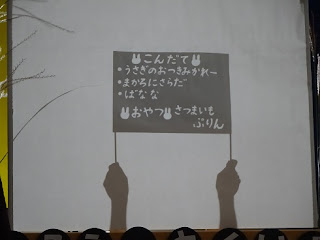 こんだて
・うさぎのおつきみかれー
・まかろにさらだ
・ばなな
おやつ さつまいも
ぷりん